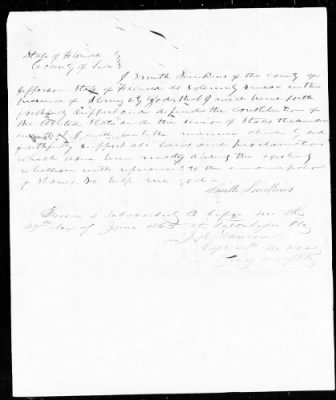 State of Florida
County of Leon
I Smith Simkins of the County of
Jefferson State of Florida do solemnly swear in the
presence of Almighty God that I will henceforth
faithfully support and defend the Constitution of
the United States and the Union of States thereunder
and that I will in like manner abide by and
faithfully support all laws and proclamations
which have been made during the existing
rebellion with reference to the emancipation
of slaves So help me God
Smith Simkins
Sworn & subscribed to before me this
day of June 1865 at Tallahassee Fla